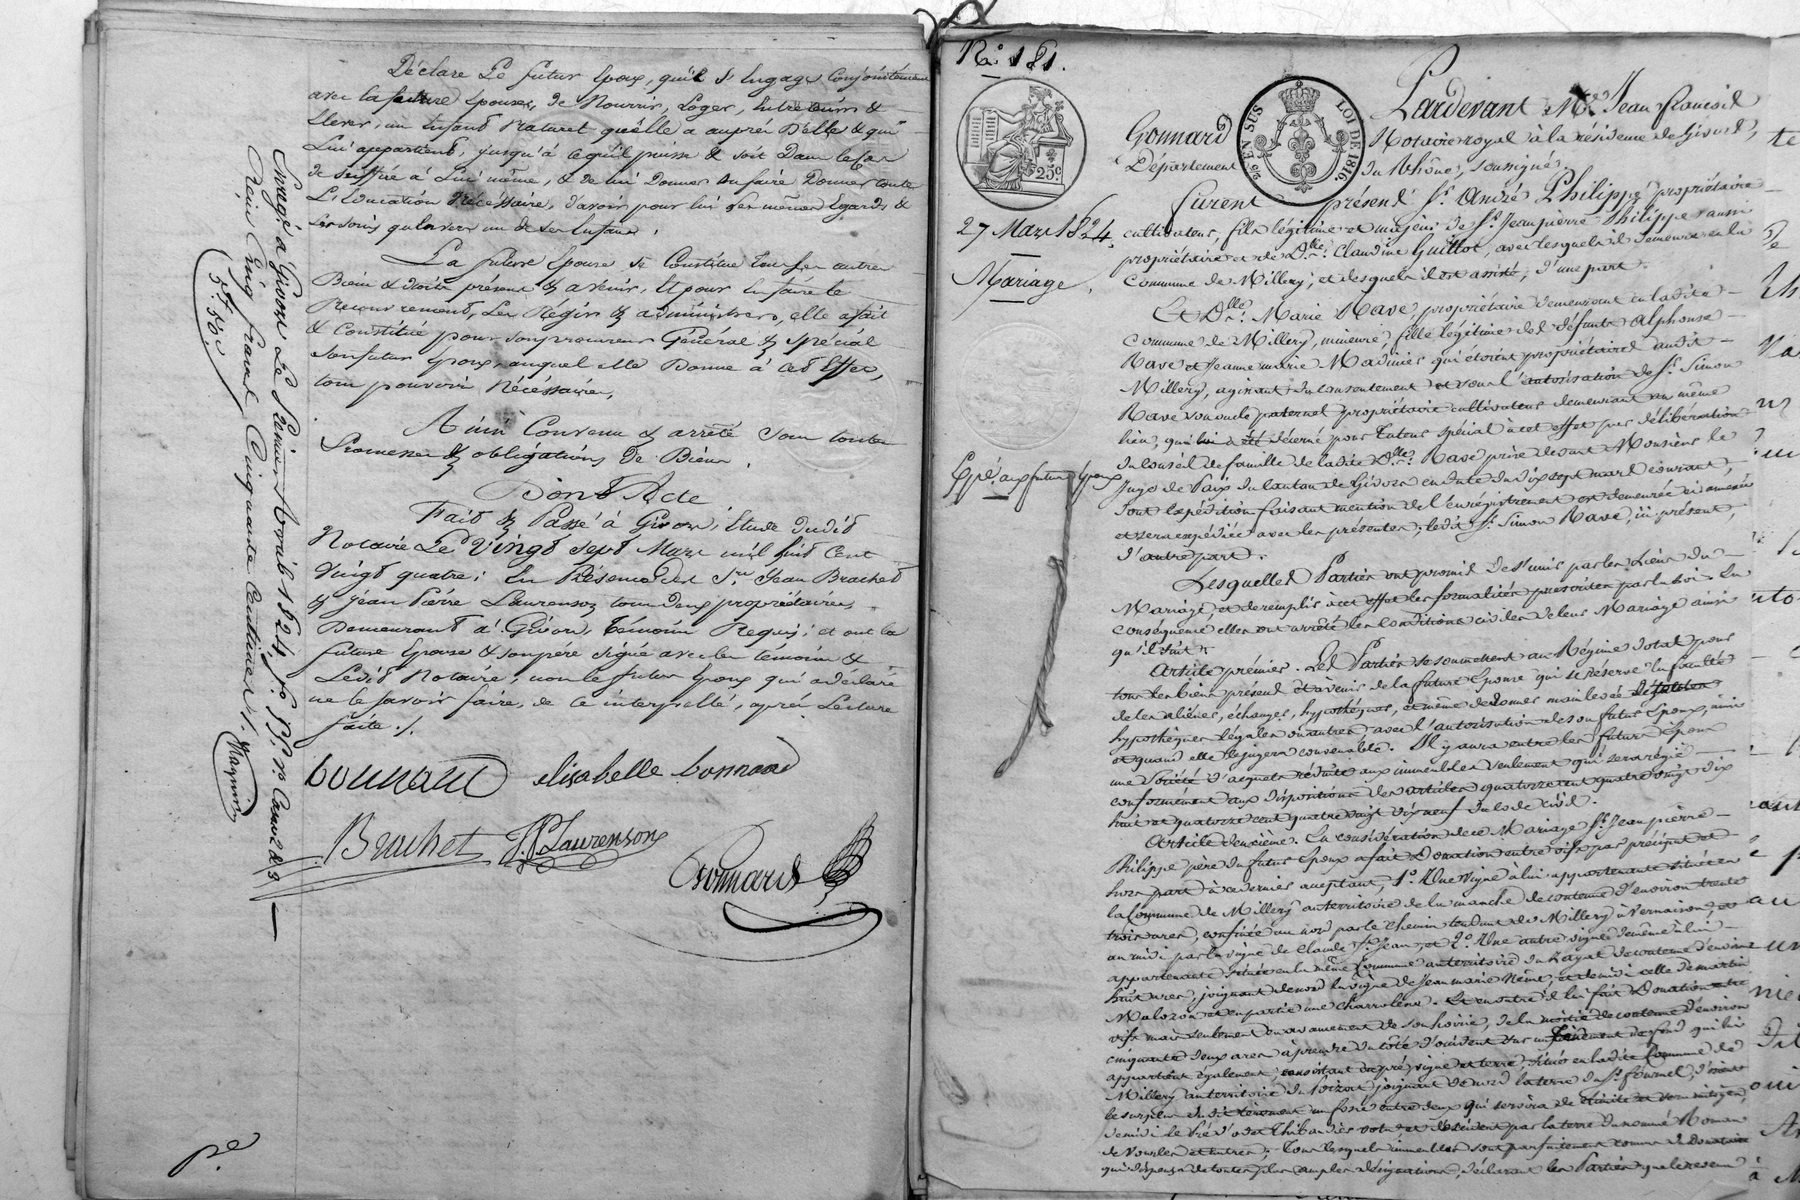 Déclare Le futur Epoux, qu'il s'Engage Conjointement
avec la future Epouse, de Nourrir, Loger, Entretenir &
Elever, un Enfant Naturel qu'elle a auprès D'elle & qui
Lui appartient, jusqu'à ce qu'il puisse & soit Dans le Cas
de Suffire à Lui même, & de lui Donner ou faire Donner toute
L'Education Nécessaire, d'avoir pour lui les mêmes Egards &
les soins qu'envers un de ses Enfans.
La future Epouse se Constitue tous ses autres
Biens & droits présens & avenir, Et pour En faire le
Recouvrement, Les Régir & administrer, elle a fait
& Constitué pour son procureur Général & spécial
son futur Epoux, auquel elle Donne à cet Effet,
tous pouvoirs Nécéssaires.
Ainsi Convenu & arrêté sous toutes
Promesses & obligations de Biens.
Dont Acte
Fait & Passé à Givors, Etude dudit
Notaire Le Vingt sept Mars mil huit Cent
Vingt quatre; En Présence des Srs Jean Brachet
& Jean Pierre Laurenson tous deux propriétaires
Demeurant à Givors, témoins Requis; et ont la
future Epouse & son père signé avec les témoins &
Ledit Notaire, non le futur Epoux qui a déclaré
ne le savoir faire, de ce interpellé, après Lecture
faite ./.
bonnard elisabelle bonnard
Brachet J.P. Laurenson
Gonnard
Enregé a Givors Le Premier Avril 1824, fo
Reçu Cinq francs Cinquante Centimes
5f. 50c.
No. 181.
25c
26 EN SUS
LOI DE 1816.
27 Mars 1824.
Mariage.
Expé. aux futurs Epoux
Pardevant Me. Jean François
Gonnard Notaire royal à la résidence de Givors,
Département du Rhône, soussigné.
Furent présens Sr. André Philippe propriétaire
cultivateur, fils légitime et majeur de Sr. Jean pierre Philippe aussi
propriétaire et de Dlle. Claudine Guillot, avec lesquels il demeure en la
Commune de Millery, et desquels il est assisté, d'une part.
Et Dlle. Marie Rave, propriétaire demeurant en ladite
Commune de Millery, mineure, fille légitime de défunts Alphonse
Rave et Jeanne marie Madinier qui étoient propriétaires audit
Millery, agissant du consentement et sous l'autorisation de Sr. Simon
Rave son oncle paternel propriétaire cultivateur demeurant au même
lieu, qui lui a été décerné pour Tuteur spécial à cet effet par délibération
du conseil de famille de ladite Dlle. Rave prise devant Monsieur le
Juge de Paix du canton de Givors en date du dix sept mars courant,
dont expédition faisant mention de l'enregistrement est demeurée ci annexée
et sera expédiée avec les présentes; ledit Sr. Simon Rave, ici présent,
d'autre part.
Lesquelles Parties ont promis de s'unir par les Liens du
Mariage, et de remplir à cet effet les formalités prescrites par la loi. En
conséquence elles ont arrêté les conditions civiles de leur Mariage ainsi
qu'il suit.
Article premier. Les Parties se soumettent au Régime dotal pour
tous les biens présens et à venir de la future Epouse qui se réserve la faculté
de les aliéner, échanger, hypothéquer, et même de donner main levée
hypothèques légales ou autres, avec l'autorisation de son futur Epoux,
et quand elle le jugera convenable. Il y aura entre les futurs Epoux
une Société d'acquets réduite aux immeubles seulement qui sera régie
conformément aux dispositions des articles quatorze cent quatre vingt dix
huit et quatorze cent quatre vingt dix neuf du Code civil.
Article deuxième. En considération de ce Mariage Sr. Jean pierre
Philippe père du futur Epoux a fait Donation entre vifs par préciput et
hors part à ce dernier acceptant, 1o. Une Vigne à lui appartenante située en
la Commune de Millery au territoire de la manche de contenue d'environ trente
trois ares, confinée au nord par le chemin tendant de Millery à Vernaison, et
au midi par la vigne de Claude St. Jean, et 2o. Une autre vigne de même à lui
appartenante située en la même Commune au territoire du de contenue d'environ
huit ares, joignant de nord la vigne de Jean marie Némé, et de midi celle de martin
Malozon et en partie une Charrière. Et en outre il lui fait Donation entre
vifs mais seulement en avancement de son hoirie, de la moitié de contenue d'environ
cinquante deux ares à prendre du côté d'occident sur un Tènement de fond qui lui
appartient également, consistant en pré, vigne et terre, situés en ladite Commune de
Millery au territoire du joignant de nord la terre du Sr. fournel, d'orient
le surplus dudit tènement un fossé entre deux qui servira de limite et sera mitoyen,
de midi le Pré d'odet Thibaudier et d'occident par la terre du nommé Roman
de Vourles et autres; Tous lesquels immeubles sont parfaitement connus du donataire
qui dispense de toutes plus amples désignations, déclarant les Parties que le revenu